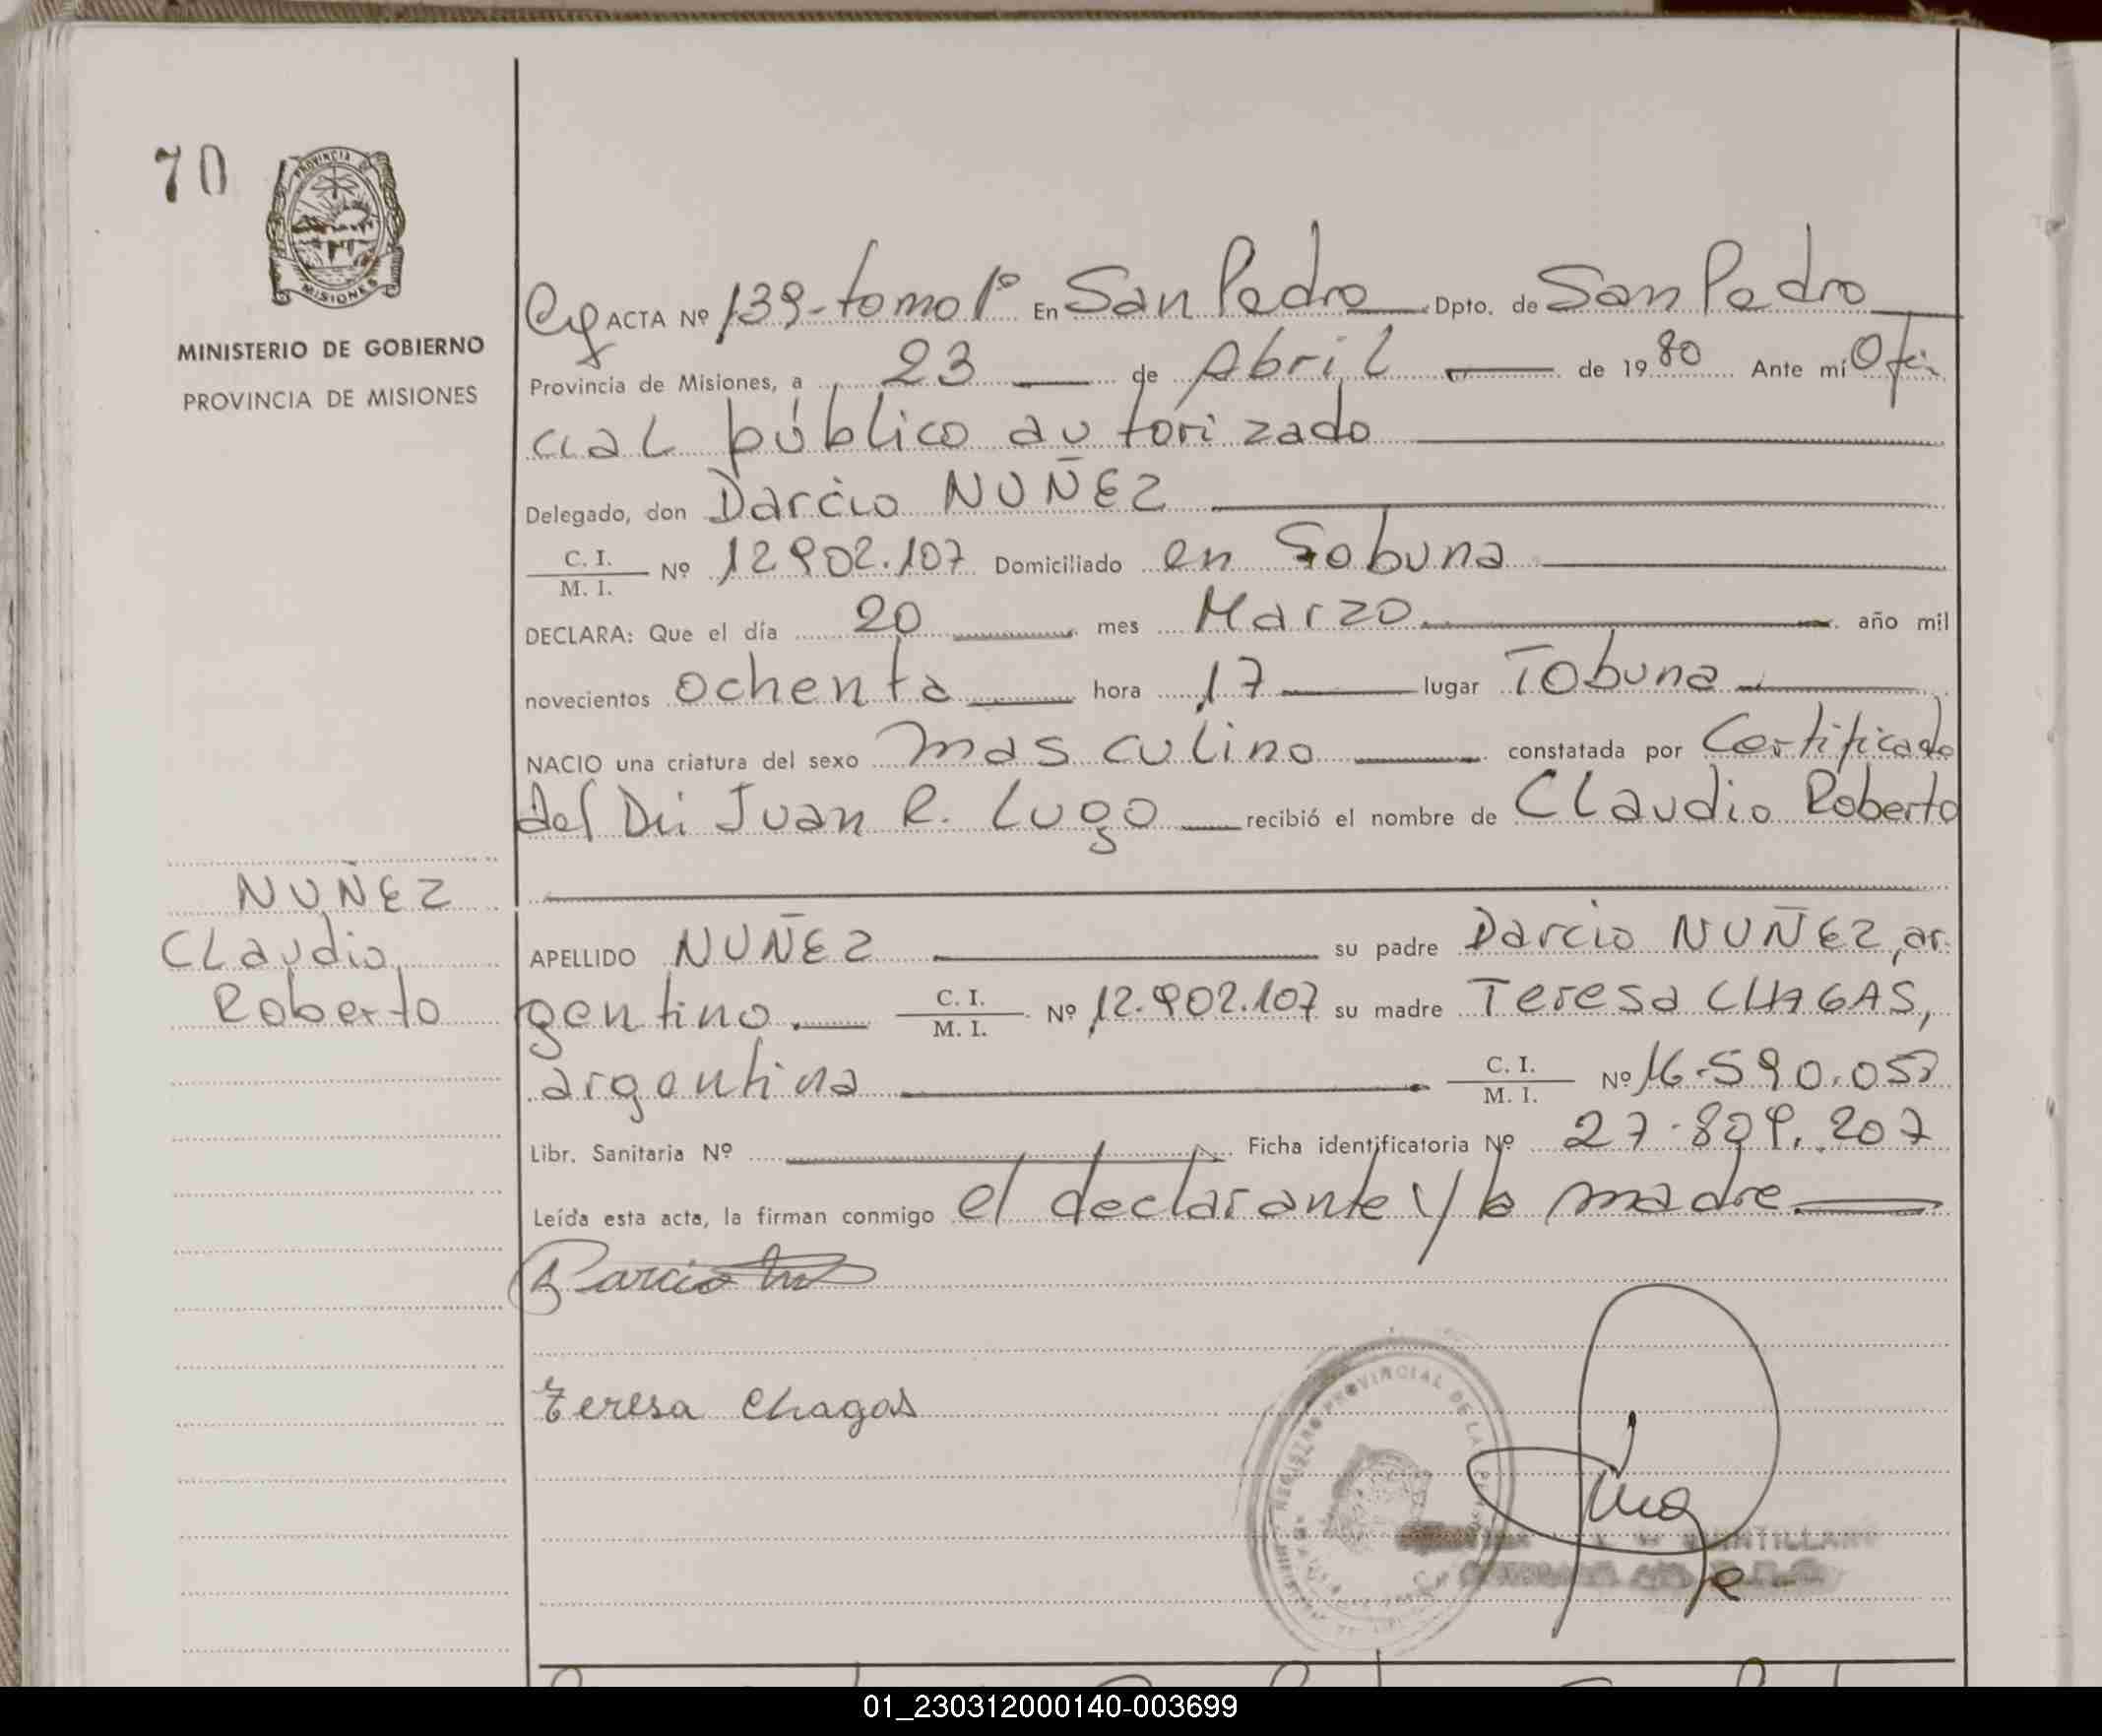 70
PROVINCIA DE
MISIONES
MINISTERIO DE GOBIERNO
PROVINCIA DE MISIONES
ACTA Nº 139-tomo 1º En San Pedro Dpto. de San Pedro
Provincia de Misiones, a 23 de Abril de 1980 Ante mí Ofi
cial público autorizado
Delegado, don Darcio NUÑEZ
C. I.
M. I. Nº 12.902.107 Domiciliado en Tobuna
DECLARA: Que el día 20 mes Marzo año mil
novecientos ochenta hora 17 lugar Tobuna
NACIO una criatura del sexo masculino constatada por Certificado
del Dr. Juan R. Lugo recibió el nombre de Claudio Roberto
NUÑEZ
Claudio
Roberto
APELLIDO NUÑEZ su padre Darcio NUÑEZ, ar
gentino. C. I.
M. I. Nº 12.902.107 su madre Teresa CHAGAS,
argentina C. I.
M. I. Nº 16.590.057
Libr. Sanitaria Nº Ficha identificatoria Nº 27.809.207
Leída esta acta, la firman conmigo el declarante y la madre
Darcio
Teresa Chagas
REGISTRO PROVINCIAL DE LAS
QUINTILLANO
01_230312000140-003699